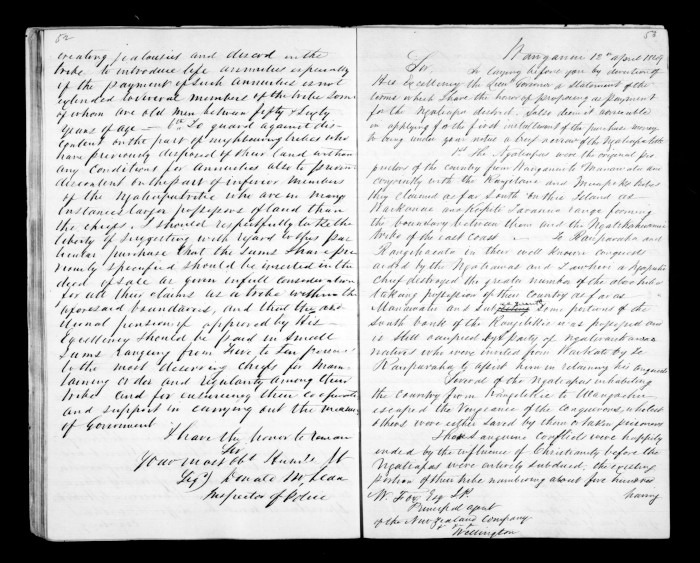 52
creating jealousies and discord in the
tribe to introduce life annuities especially
if the payment of such annuities is not
extended to several members of the tribe some
of whom are old men between fifty & sixty
years of age — 6th To guard against dis-
content on the part of neighbouring tribes who
have previously disposed of their land without
any conditions for annuities also to prevent
discontent on the part of inferior members
of the Ngatiapa tribe who are in many
instances larger possessors of land than
the chiefs. I should respectfully take the
liberty of suggesting with regard to this par
ticular purchase that the sums I have pre
viously specified should be inserted in the
deed of sale as given in full consideration
for all their claims as a tribe within the
aforesaid boundaries, and that the addi
tional pension if approved by His
Excellency should be paid in small
sums ranging from Five to Ten pounds
to the most deserving chiefs for main
taining order and regularity among their
tribe and for ensuring their cooperation
and support in carrying out the measures
of Government
I have the honor to remain
Sir
Your most obt Humble St
Donald McLean
Inspector of Police
53
Wanganui 12th April 1849
Sir
In laying before you by direction of
His Excellency the Lieut Governor a statement of the
terms which I have the honor of proposing as payment
for the Ngatiapa district, I also deem it advisable
in applying for the first instalment of the purchase money
to bring under your notice a brief review of the Ngatiapa tribe
1st The Ngatiapas were the original pro
prietors of the country from Wanganui to Manawatu and
conjointly with the Rangitane and Muaupoko tribes
they claimed as far South on this Island as
the Tararua range forming
the boundary between them and the Ngatikahununu
tribe of the east coast — Te Rauparaha and
Rangihaeata in their well known conquest
aided by the Ngatiawas and a Ngapuhi
Chief destroyed the greater number of the above tribes
taking possession of their country as far as
Manawatu and some portions of the
South bank of the Rangitikei was possessed and
is still occupied by a party of Ngatiraukawa
natives who were invited from Waikato by Te
Rauparaha to assist him in retaining his conquests
Several of the Ngatiapas inhabiting
the country from Rangitikei to Wangaehu
escaped the vengeance of the conquerors, whilst
others were either saved by them or taken prisoners
These sanguine conflicts were happily
ended by the influence of Christianity before the
Ngatiapas were entirely subdued, the existing
portion of their tribe numbering about five hundred
having
W. Fox Esq JP
Principal agent
of the New Zealand Company
Wellington